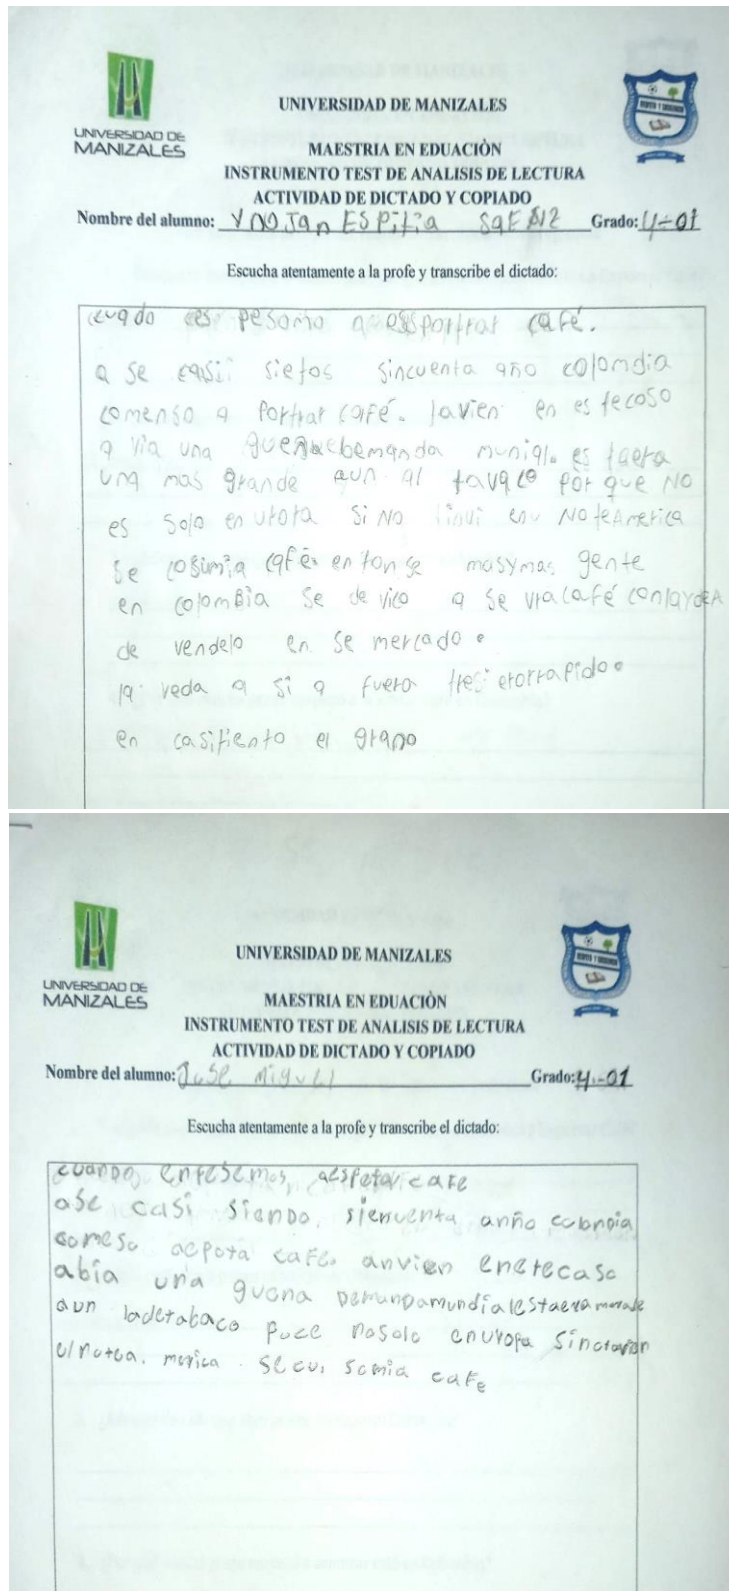 UNIVERSIDAD DE MANIZALES
UNIVERSIDAD DE
MANIZALES
MAESTRIA EN EDUACIÒN
INSTRUMENTO TEST DE ANALISIS DE LECTURA
ACTIVIDAD DE DICTADO Y COPIADO
Nombre del alumno: ESPitia Grado: 4-01
Escucha atentamente a la profe y transcribe el dictado:
pesamo café.
a se casii sietos sincuenta año colomdia
comenso a Portrar café. tavien en es tecaso
a via una munial. es taera
una mas grande aun al tavaco por que NO
es solo en urota si NO NoteAmerica
se cosimia café. en ton se masymas gente
en colomBia se de vico a se vracafé conlaydeA
de vendelo en se mercado.
la veda a si a fuera
en casifiento el grano
UNIVERSIDAD DE MANIZALES
UNIVERSIDAD DE
MANIZALES
MAESTRIA EN EDUACIÒN
INSTRUMENTO TEST DE ANALISIS DE LECTURA
ACTIVIDAD DE DICTADO Y COPIADO
Nombre del alumno: Jose Miguel Grado: 4-01
Escucha atentamente a la profe y transcribe el dictado:
cuando enpesemos cafe
ase casi siendo, sienuenta anño, colonpia
comeso acpota cafe. anvien enetecaso
abía una guena
aun ladetabaco puce nosolo enuropa
merica. secu. somia cafe